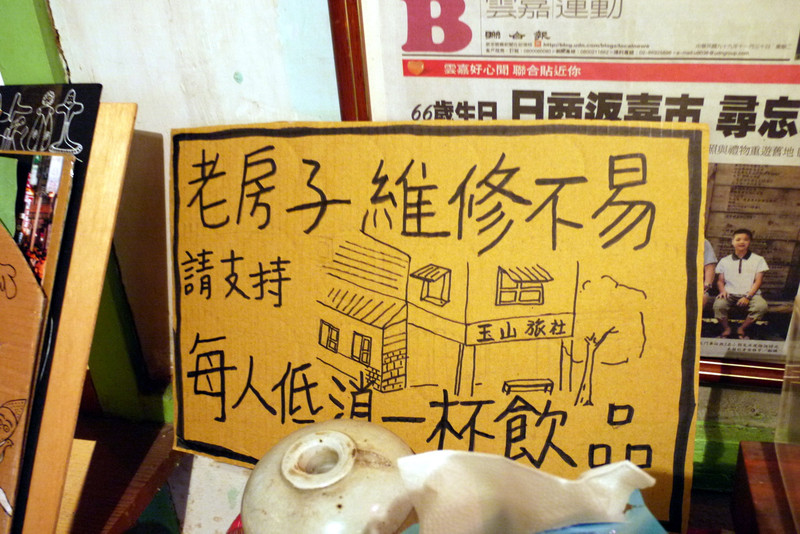 B
雲嘉運動
聯合報
雲嘉好心聞 聯合貼近你
66歲生日 日商返嘉市 尋忘
照與禮物重遊舊地
老房子 維修不易
請支持
玉山旅社
每人低消一杯飲品